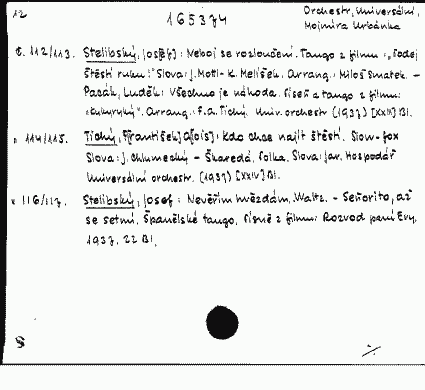 12
165374
Orchestr, Universální,
Mojmíra Urbánka
č. 112/113. Stelibský, Jos[ef]: Neboj se rozloučení. Tango z filmu: "Podej
štěstí ruku!" Slova: J. Motl - K. Melíšek. Arrang.: Miloš Smatek. -
Pacák, Luděk: Všechno je náhoda. Píseň a tango z filmu:
"Kykyryký". Arrang. F.A. Tichý. Univ. orchestr (1937) [XXIV] Bl.
" 114/115. Tichý, F[rantišek] A[lois]: Kdo chce najít štěstí. Slow-fox
Slova: J. Chlumecký - Škaredá, Polka. Slova: Jar. Hospodář
Universální orchestr. (1937) [XXIV] Bl.
" 116/117. Stelibský, Josef: Nevěřím hvězdám, Waltz. - Señorito, až
se setmí, Španělské tango. Písně z filmu: Rozvod paní Evy,
1937. 22 Bl.
8